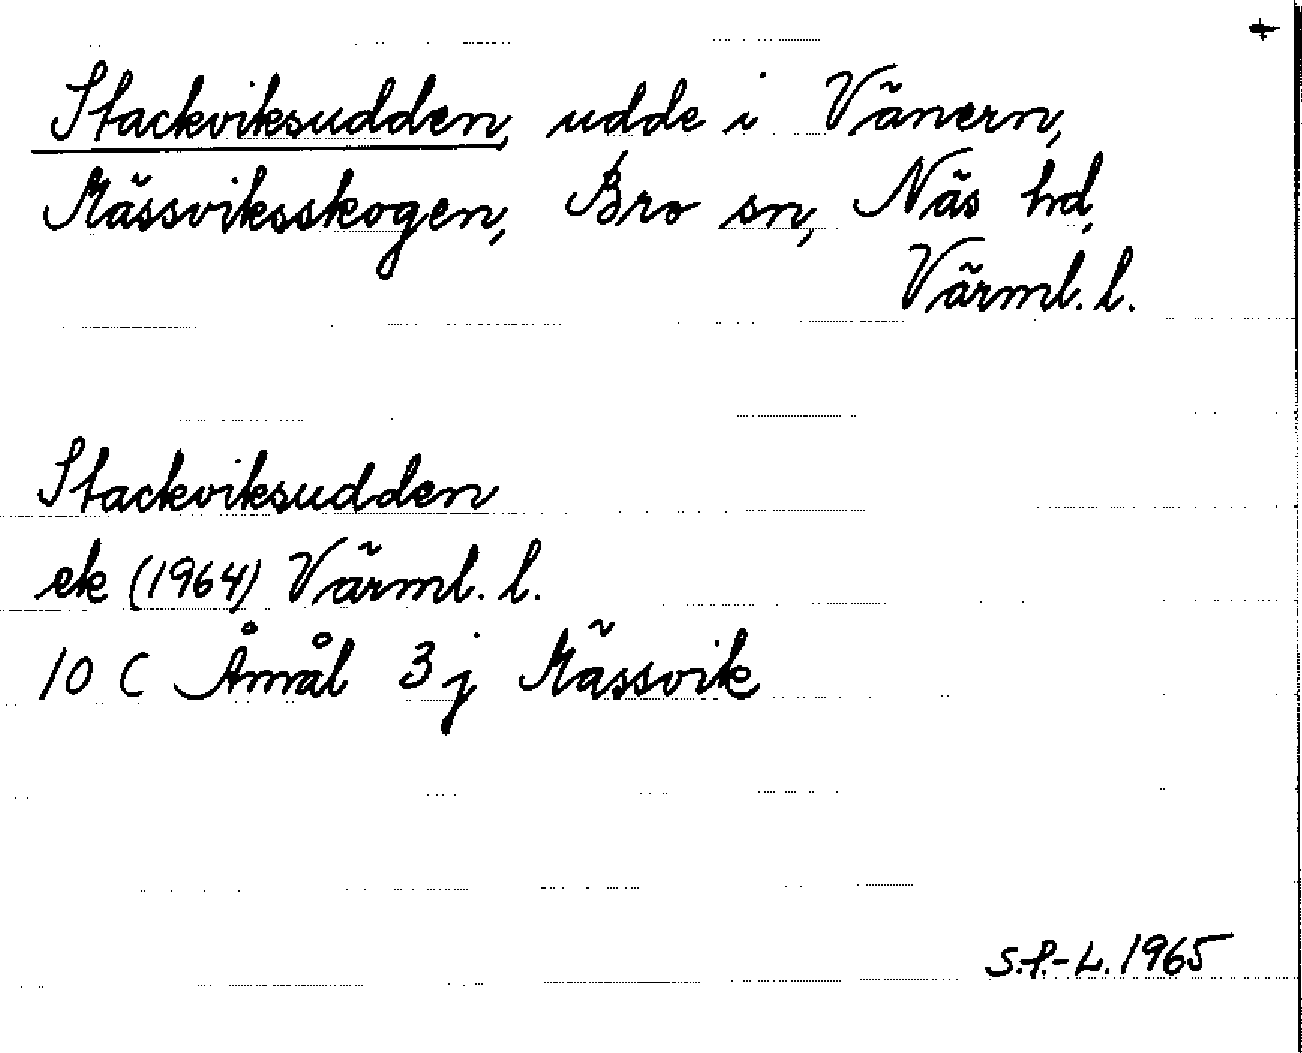 +
Stackviksudden, udde i Vänern,
Mässviksskogen, Bro sn, Näs hd,
Värml. l.
Stackviksudden
ek (1964) Värml. l.
10 C Åmål 3j Mässvik
S.P.-L. 1965